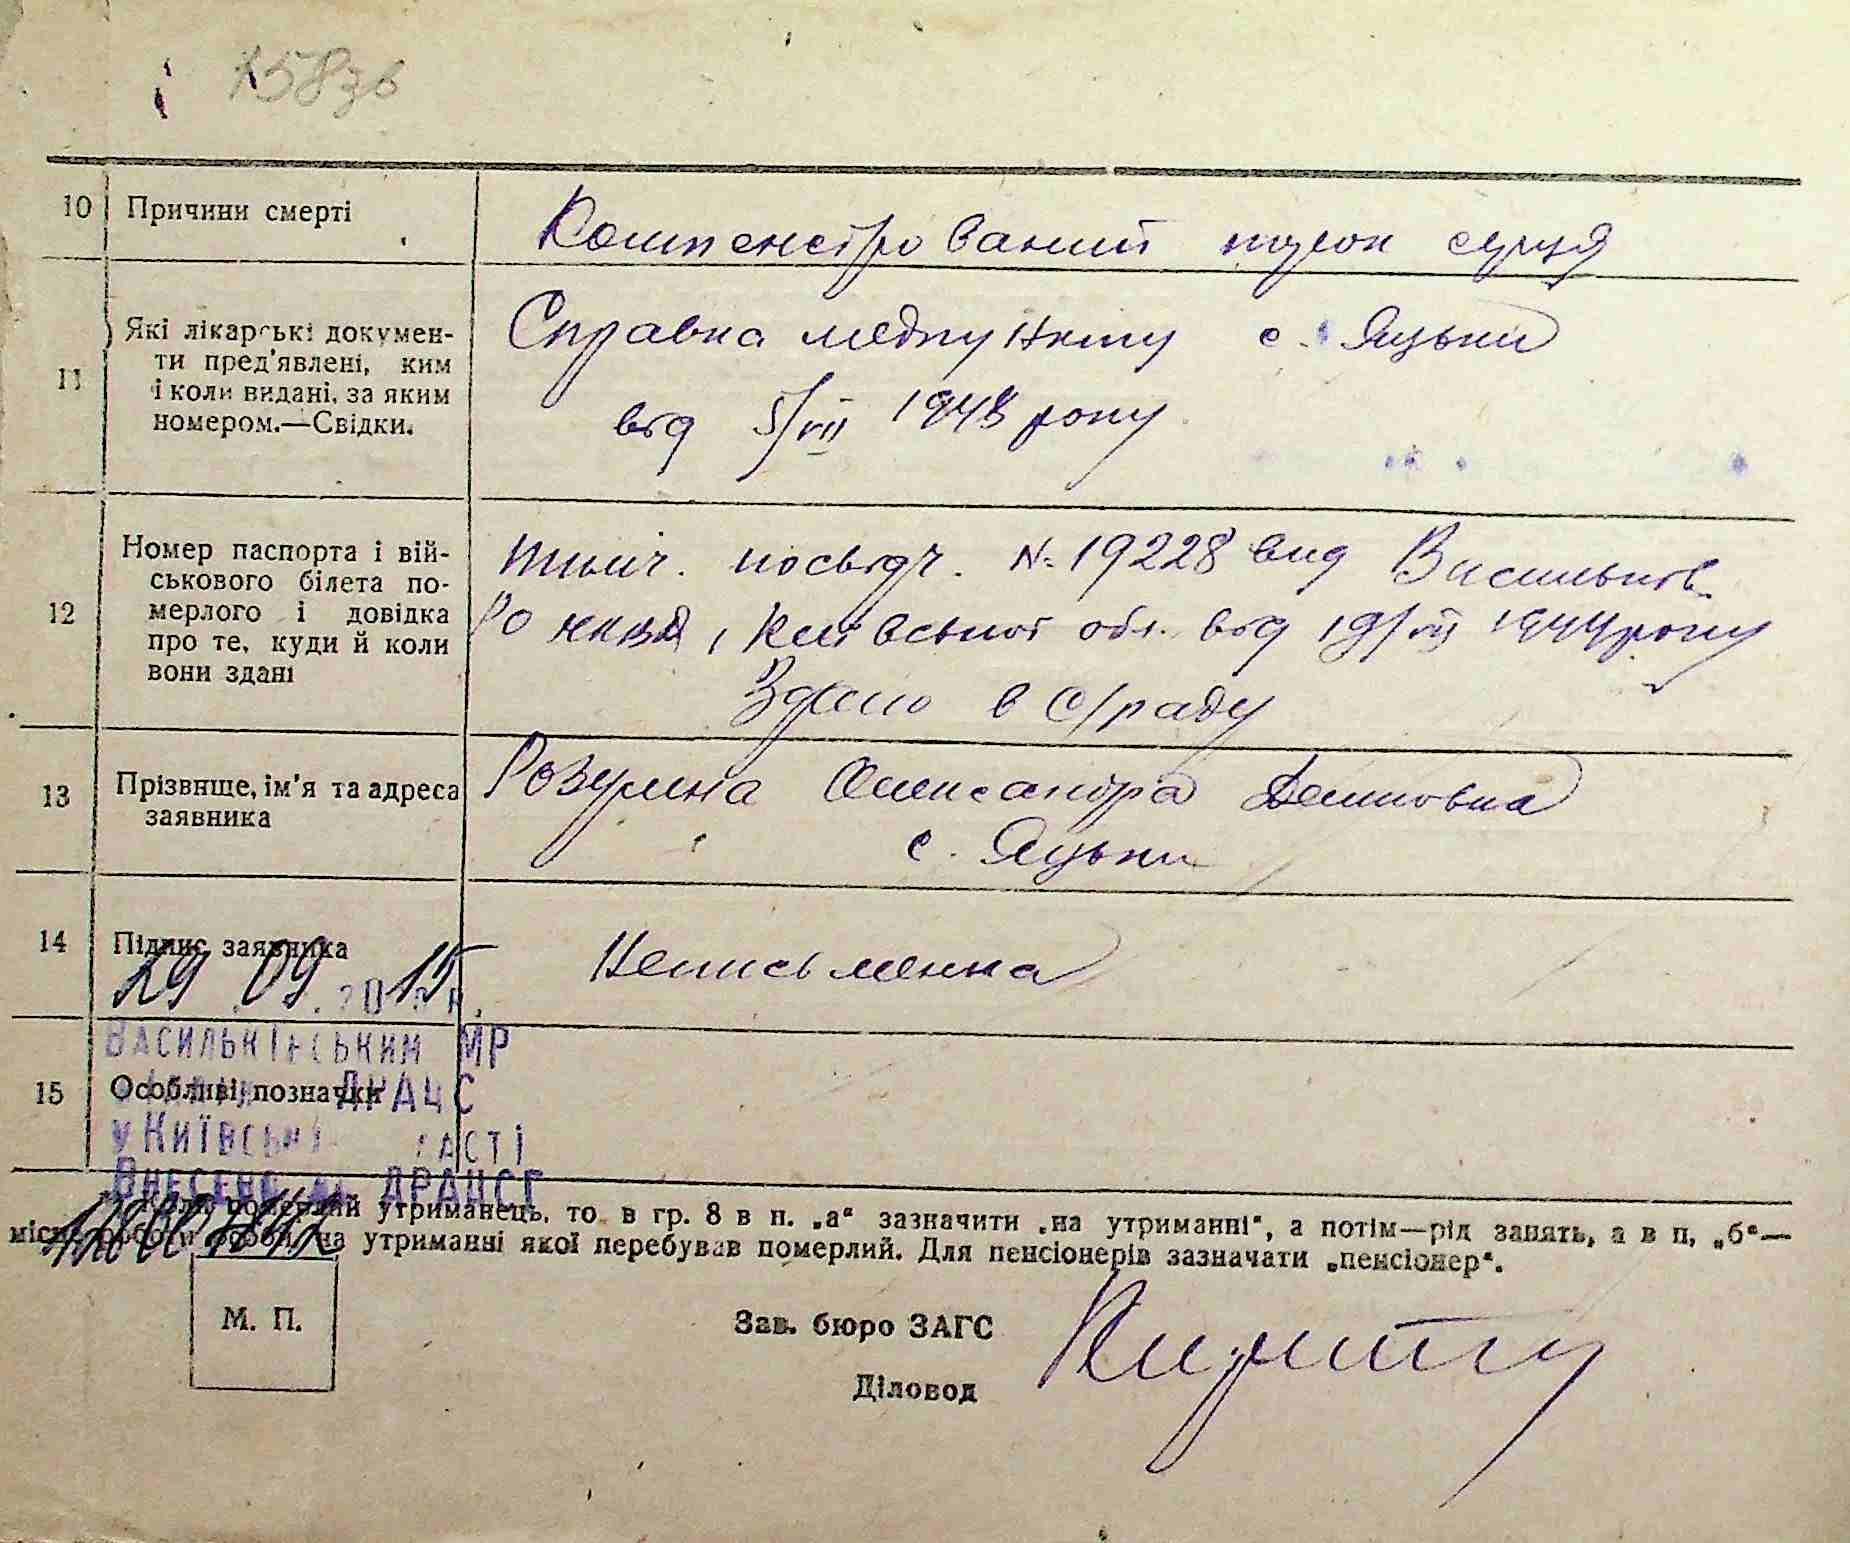 158зв
10 Причини смерті Компенсірований порок серця
11 Які лікарські докумен-
ти пред'явлені, ким
і коли видані, за яким
номером.—Свідки.
Справка медпункту с. Яцьки
від 5/VII 1948 року
12 Номер паспорта і вій-
ськового білета по-
мерлого і довідка
про те, куди й коли
вони здані
тимч. посвідч. № 19228 вид Васильків.
РО НКВД, Київської обл. від 19/VII 1944 року
Здано в с/раду
13 Прізвище, ім'я та адреса
заявника
Розумна Олександра Демновна
с. Яцьки
14 Підпис заявника Неписьменна
29 .09 .2015 р.
Васильківським МР
15 Особливі позначки
ДРАЦС
у Київській області
Внесено до ДРАЦСГ
утриманець, то в гр. 8 в п. „а“ зазначити „на утриманні“, а потім—рід занять, а в п, „б“—
на утриманні якої перебував померлий. Для пенсіонерів зазначати „пенсіонер“.
М. П.
Зав. бюро ЗАГС
Діловод